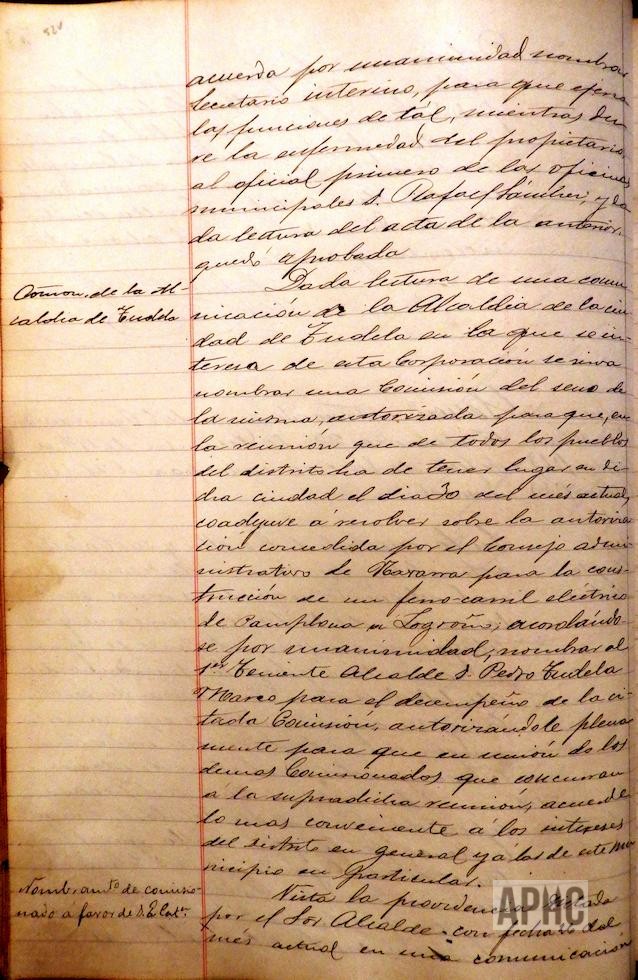 acuerda por unanimidad nombrar
Secretario interino, para que ejerza
las funciones de tál, mientras du-
re la enfermedad del propietario,
al oficial primero de las oficinas
municipales D. Rafael Sánchez, y da-
da lectura del acta de la anterior,
quedó aprobada
Comon. de la Al-
caldia de Tudela
Dada lectura de una comu-
nicación de la Alcaldia de la ciu-
dad de Tudela en la que se in-
teresa de esta Corporación se sirva
nombrar una Comisión del seno de
la misma, autorizada para que, en
la reunión que de todos los pueblos
del distrito ha de tener lugar en di-
cha ciudad el dia 30 del més actual,
coadyuve á resolver sobre la autoriza-
ción concedida por el Consejo admi-
nistrativo de Navarra para la cons-
trucción de un ferro-carril eléctrico
de Pamplona a Logroño; acordándo-
se por unanimidad, nombrar al
1er Teniente Alcalde D. Pedro Tudela
Marco para el decempeño de la ci-
tada Comisión, autorizándole plena-
mente para que en unión de los
demas Comisionados que concurran
á la supradicha reunión, acuerde
lo mas conveniente á los intereses
del distrito en general y á los de este mu-
nicipio en particular.
Nombramto de comisio-
nado á favor de D.
Vista la providencia dictada
por el Sor. Alcalde con fecha del
més actual en una comunicación
APHC